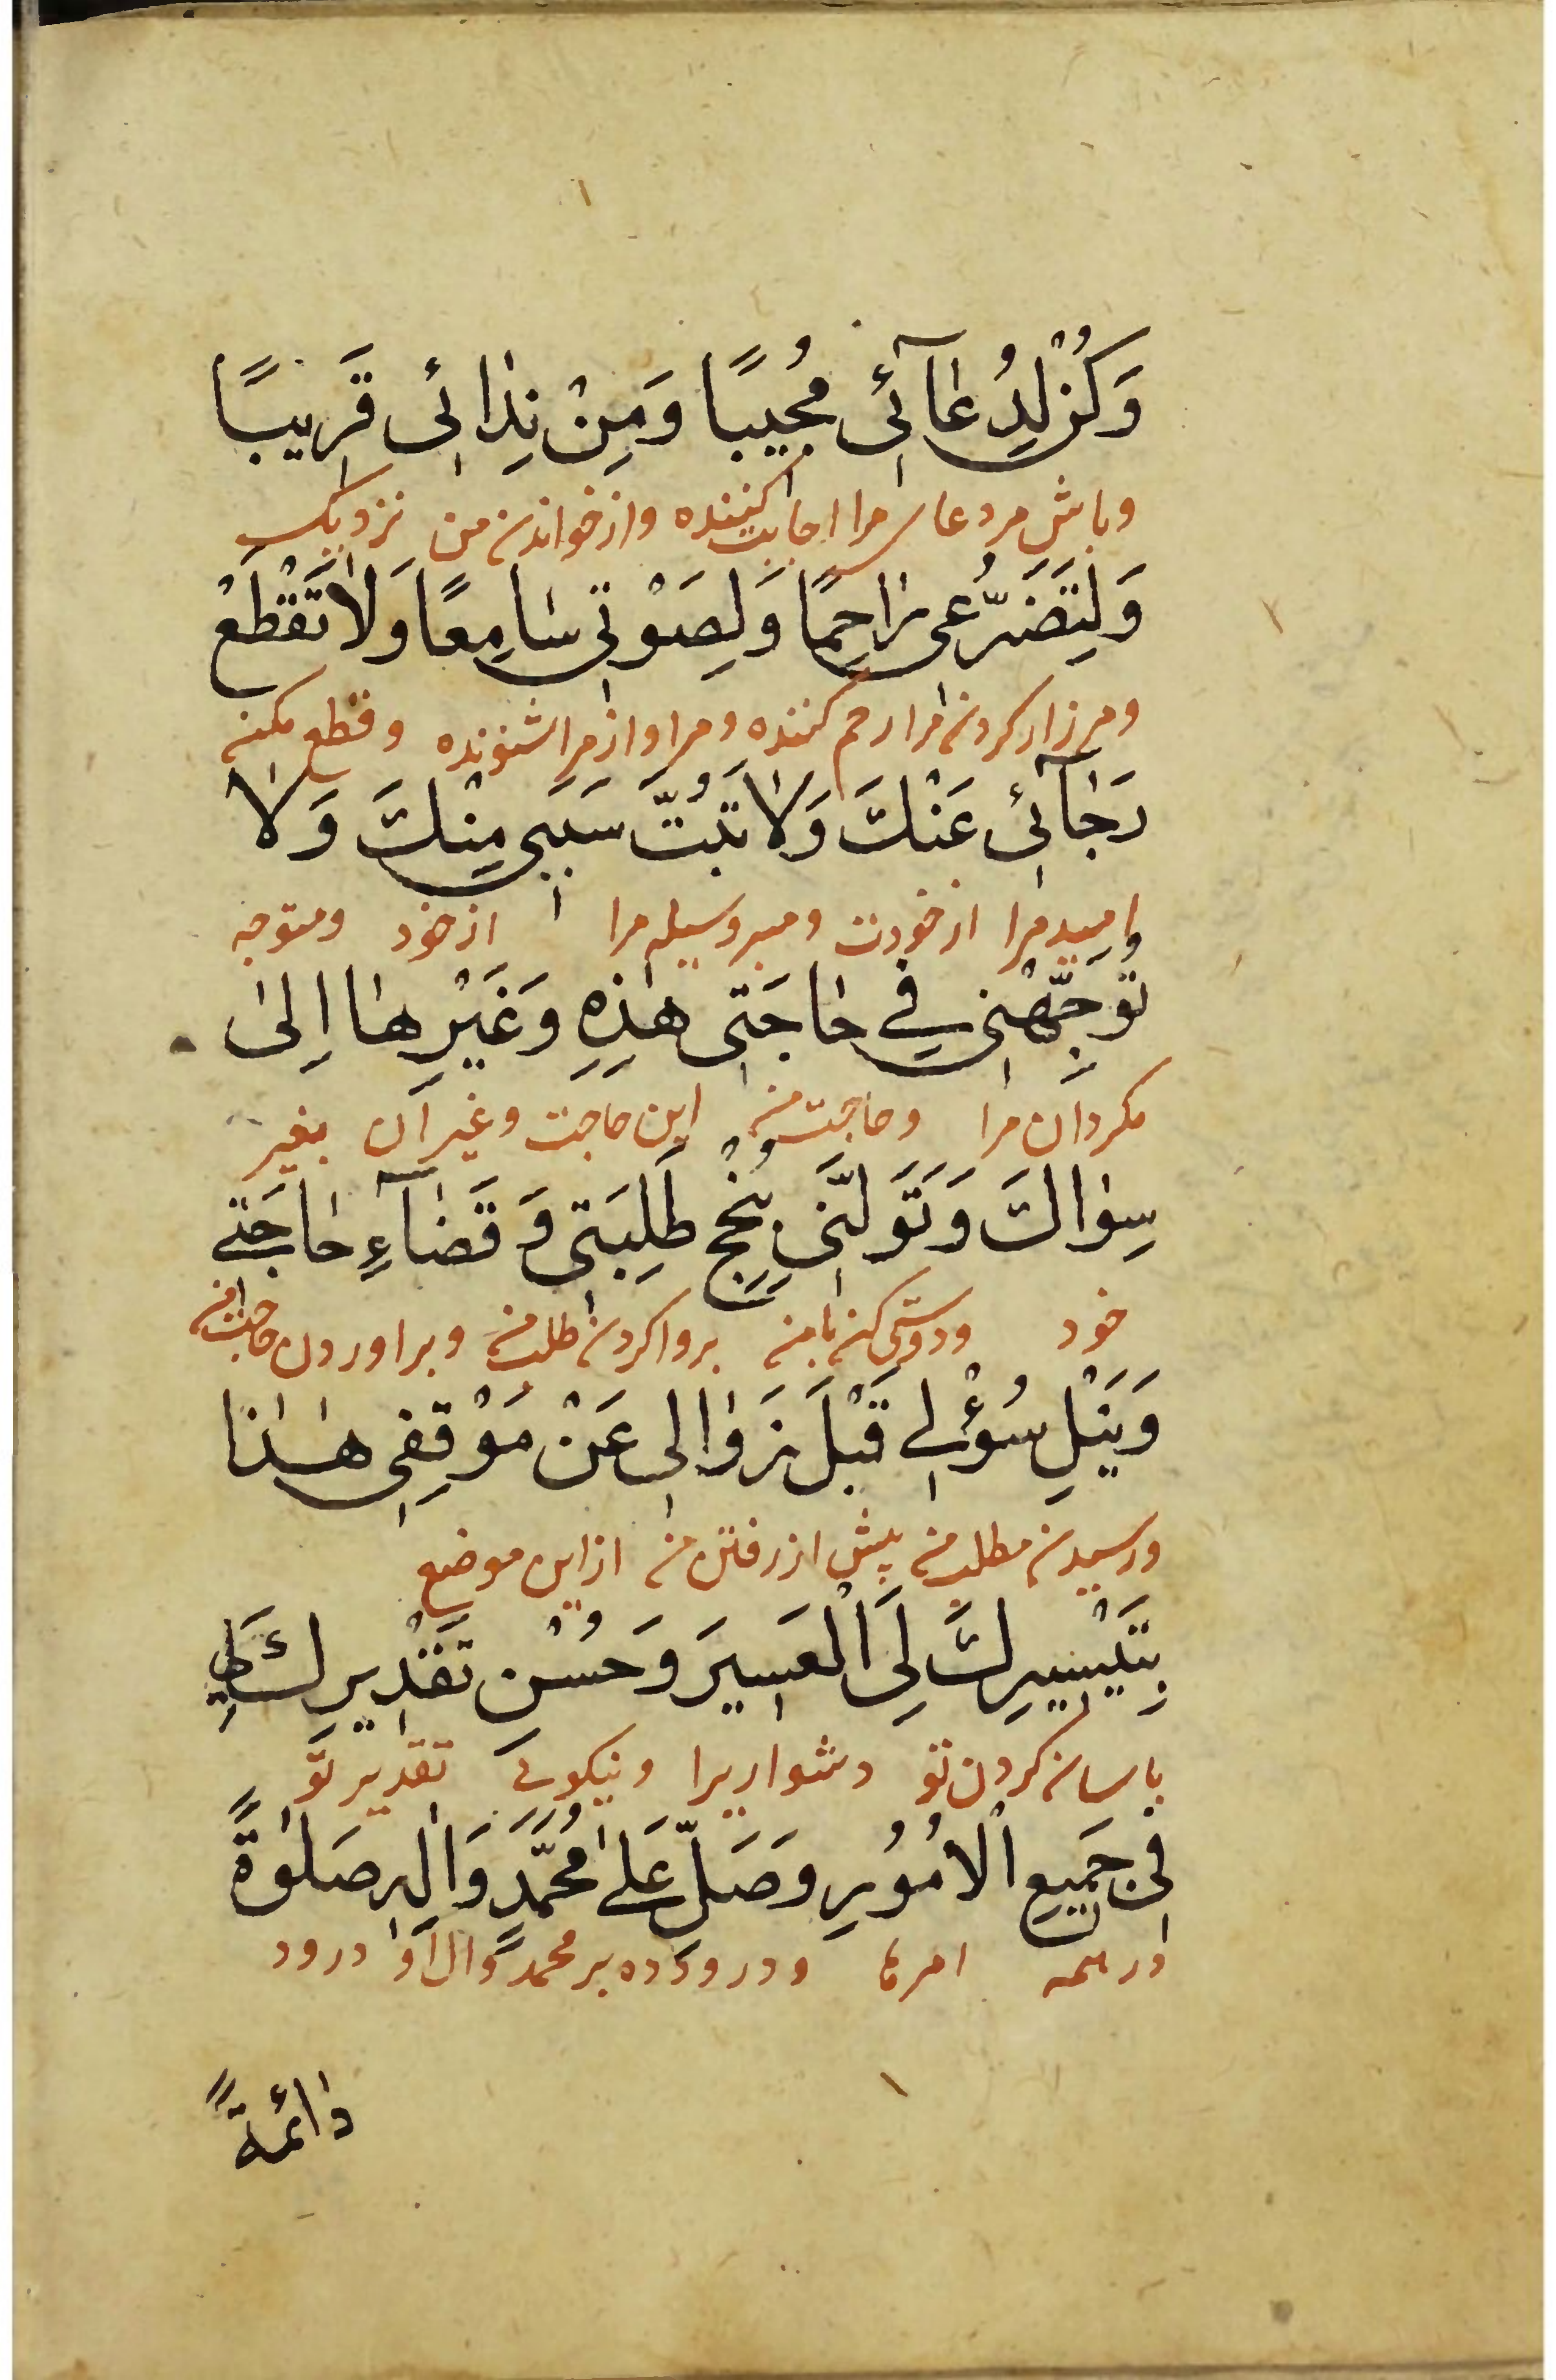 وَكُنْ لِدُعَآئِى مُجِيبًا وَمِنْ نِدَائِى قَرِيبًا
وباش مر دعاى مرا اجابت كننده واز خواندن من نزديك
وَلِتَضَرُّعِى رَاحِمًا وَلِصَوْتِى سَامِعًا وَلَا تَقْطَعْ
ومر زار كردن مرا رحم كننده ومر اواز مرا شنونده وقطع مكن
رَجَآئِى عَنْكَ وَلَا تَبُتَّ سَبَبِى مِنْكَ وَلَا
اميد مرا از خودت ومبر وسيله مرا از خود ومتوجه
تُوَجِّهْنِى فِى حَاجَتِى هٰذِهِ وَغَيْرِهَا اِلىٰ
مكردان مرا وحاجت من اين حاجت وغير ان بغير
سِوَاكَ وَتَوَلَّنِى بِنُجْحِ طَلِبَتِى وَقَضَآءِ حَاجَتِى
خود ودوستى كن با من بروا كردن طلب من وبراوردن حاجت من
وَنَيْلِ سُؤْلِى قَبْلَ زَوَالِى عَنْ مَوْقِفِى هٰذَا
ورسيدن مطلب من پيش از رفتن من از اين موضع
بِتَيْسِيرِكَ لِىَ الْعَسِيرَ وَحُسْنِ تَقْدِيرِكَ لِى
باسان كردن تو دشوارى را ونيكوئى تقدير تو
فِى جَمِيعِ الْاُمُورِ وَصَلِّ عَلىٰ مُحَمَّدٍ وَاٰلِهِ صَلٰوةً
در همه امرها ودرود ده بر محمد وال او درود
دَائِمَةً